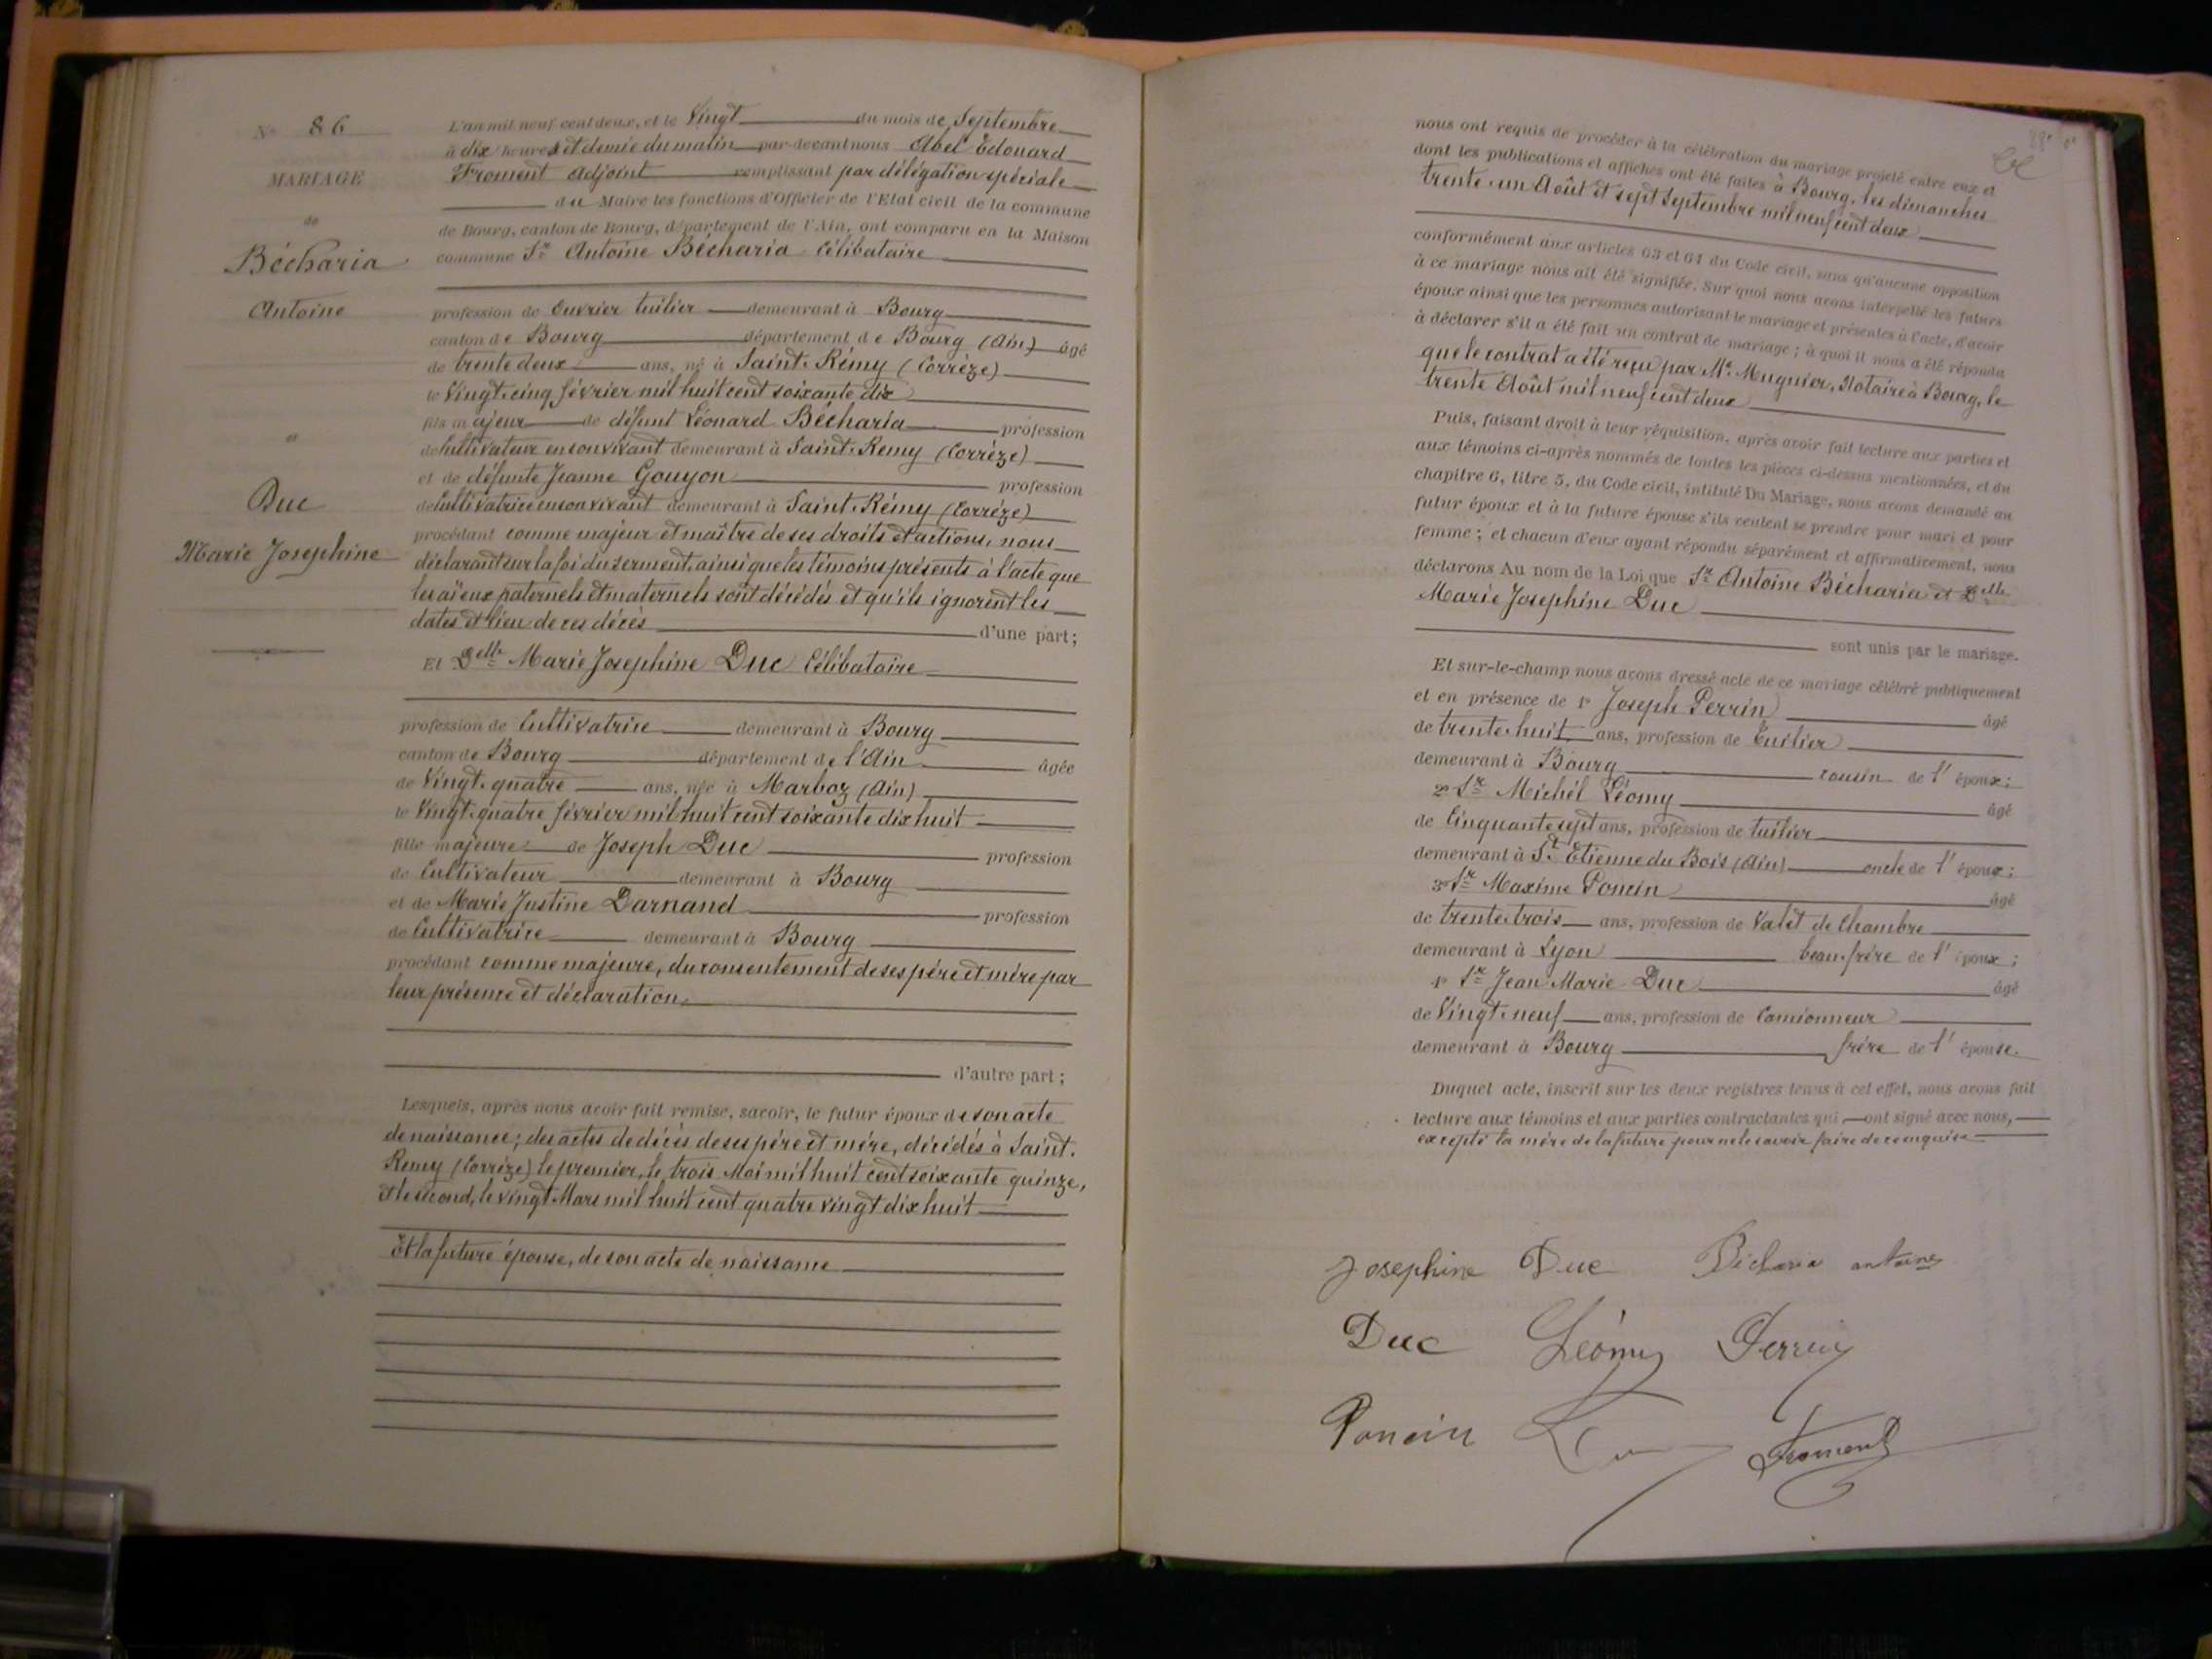 No 86
MARIAGE
de
Bécharia
Antoine
et
Duc
Marie Josephine
L'an mil neuf cent deux, et le Vingt du mois de Septembre
à dix heures et demie du matin par-devant nous Abel Edouard
Froment Adjoint remplissant par délégation spéciale
du Maire les fonctions d'Officier de l'Etat civil de la commune
de Bourg, canton de Bourg, département de l'Ain, ont comparu en la Maison
commune Sr Antoine Bécharia Célibataire
profession de Ouvrier tuilier demeurant à Bourg
canton de Bourg département de Bourg (Ain) âgé
de trente deux ans, né à Saint-Rémy (Corrèze)
le Vingt-cinq février mil huit cent soixante dix
fils majeur de défunt Léonard Bécharia profession
de Cultivateur en son vivant demeurant à Saint-Remy (Corrèze)
et de défunte Jeanne Gouyon profession
de Cultivatrice en son vivant demeurant à Saint-Rémy (Corrèze)
procédant comme majeur et maître de ses droits et actions, nous
déclarant sur la foi du serment, ainsi que les témoins présents à l'acte que
les aïeux paternels et maternels sont décédés et qu'ils ignorent les
dates et lieu de ces décès d'une part;
Et Delle Marie Josephine Duc Célibataire
profession de Cultivatrice demeurant à Bourg
canton de Bourg département de l'Ain âgée
de Vingt-quatre ans, née à Marboz (Ain)
le Vingt-quatre février mil huit cent soixante dix huit
fille majeure de Joseph Duc profession
de Cultivateur demeurant à Bourg
et de Marie Justine Darnand profession
de Cultivatrice demeurant à Bourg
procédant comme majeure, du consentement de ses père et mère par
leur présence et déclaration
d'autre part;
Lesquels, après nous avoir fait remise, savoir, le futur époux de son acte
de naissance; des actes de décès de ses père et mère, décédés à Saint-
Remy (Corrèze) le premier, le trois Mai mil huit cent soixante quinze,
et le second, le vingt Mars mil huit cent quatre vingt dix huit
Et la future épouse, de son acte de naissance
nous ont requis de procéder à la célébration du mariage projeté entre eux et
dont les publications et affiches ont été faites à Bourg, les dimanches
trente-un Août et sept Septembre mil neuf cent deux
conformément aux articles 63 et 64 du Code civil, sans qu'aucune opposition
à ce mariage nous ait été signifiée. Sur quoi nous avons interpellé les futurs
époux ainsi que les personnes autorisant le mariage et présentes à l'acte, d'avoir
à déclarer s'il a été fait un contrat de mariage; à quoi il nous a été répondu
que le contrat a été reçu par Me Muguier, Notaire à Bourg, le
trente Août mil neuf cent deux
Puis, faisant droit à leur réquisition, après avoir fait lecture aux parties et
aux témoins ci-après nommés de toutes les pièces ci-dessus mentionnées, et du
chapitre 6, titre 5, du Code civil, intitulé Du Mariage, nous avons demandé au
futur époux et à la future épouse s'ils veulent se prendre pour mari et pour
femme; et chacun d'eux ayant répondu séparément et affirmativement, nous
déclarons Au nom de la Loi que Sr Antoine Bécharia et Delle
Marie Josephine Duc
sont unis par le mariage.
Et sur-le-champ nous avons dressé acte de ce mariage célébré publiquement
et en présence de 1° Joseph Perrin âgé
de trente-huit ans, profession de Tuilier
demeurant à Bourg cousin de l'époux;
2° Sr Michél Léomy âgé
de Cinquante sept ans, profession de tuilier
demeurant à St Etienne du Bois (Ain) oncle de l'époux;
3° Sr Maxime Poncin âgé
de trente-trois ans, profession de Valet de Chambre
demeurant à Lyon beau-frère de l'époux;
4° Sr Jean Marie Duc âgé
de Vingt-neuf ans, profession de Camionneur
demeurant à Bourg frère de l'épouse.
Duquel acte, inscrit sur les deux registres tenus à cet effet, nous avons fait
lecture aux témoins et aux parties contractantes qui ont signé avec nous,
excepté la mère de la future pour ne le savoir faire de ce enquise
Josephine Duc Bécharia antoine
Duc Léomy Perrin
Poncin Froment